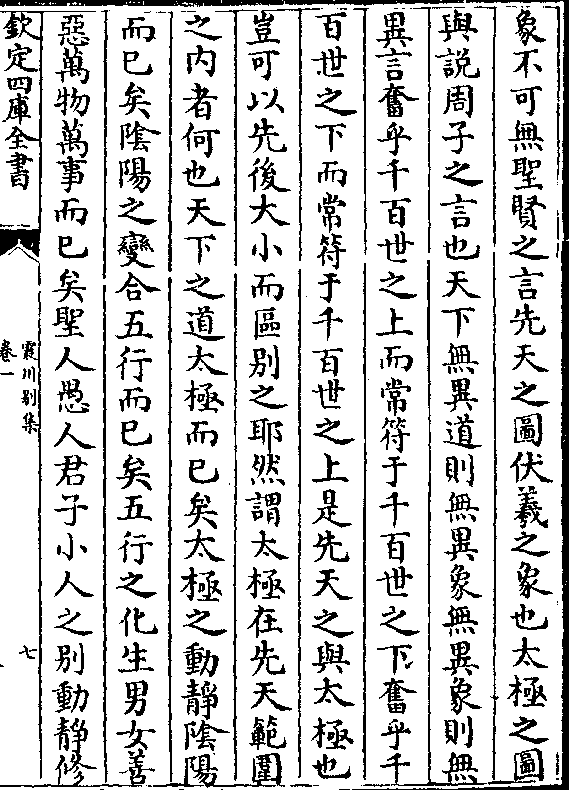 象不可無聖賢之言先天之圖伏羲之象也太極之圖
與說周子之言也天下無異道則無異象無異象則無
異言奮乎千百世之上而常符于千百世之下奮乎千
百世之下而常符于千百世之上是先天之與太極也
豈可以先後大小而區別之耶然謂太極在先天範圍
之内者何也天下之道太極而已矣太極之動靜隂陽
而已矣隂陽之變合五行而已矣五行之化生男女善
惡萬物萬事而已矣聖人愚人君子小人之別動靜修
欽定四庫全書
震川別集
卷一
七